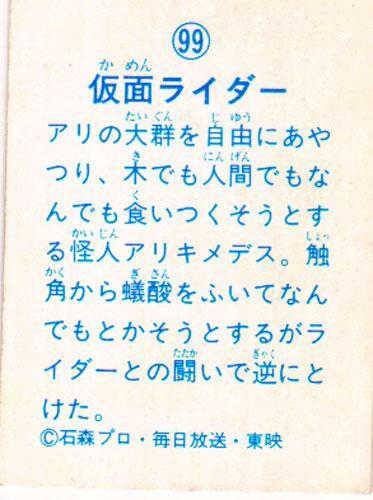 99
仮面ライダー
アリの大群を自由にあや
つり、木でも人間でもな
んでも食いつくそうとす
る怪人アリキメデス。触
角から蟻酸をふいてなん
でもとかそうとするがラ
イダーとの闘いで逆にと
けた。
©石森プロ・毎日放送・東映